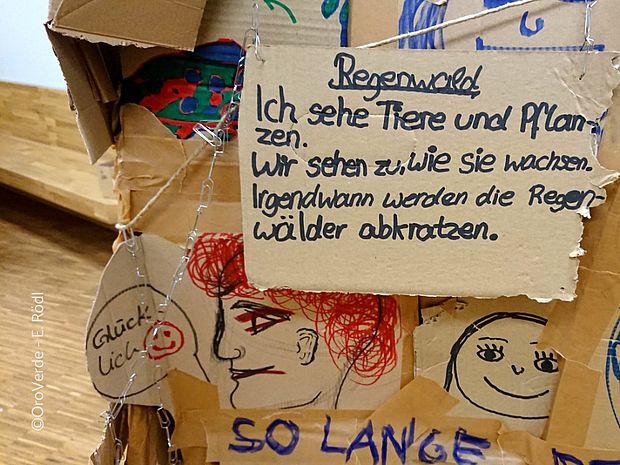 Regenwald
Ich sehe Tiere und Pflan-
zen.
Wir sehen zu, wie sie wachsen.
Irgendwann werden die Regen-
wälder abkratzen.
Glück-
lich
SO LANGE
©OroVerde - E. Rödl